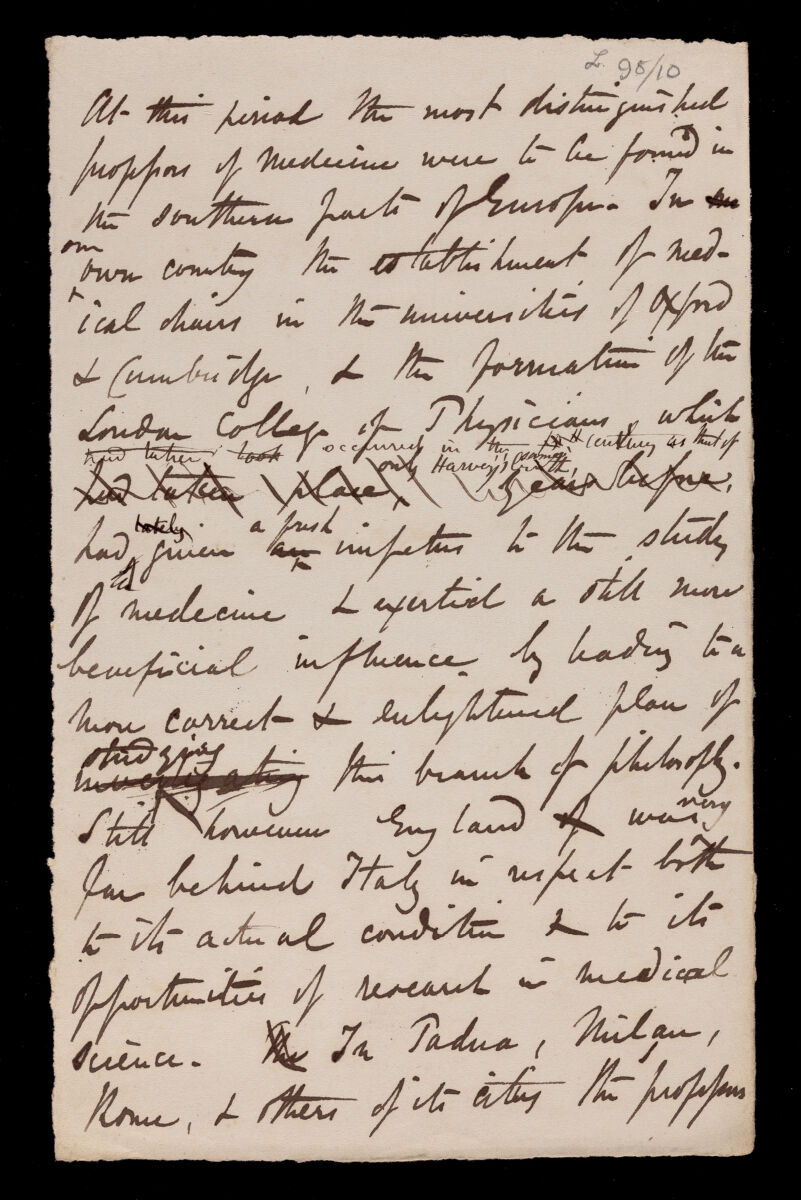 L. 95/10
At this period the most distinguished
professors of Medecine were to be found in
the southern parts of Europe. In
our
own country the establishment of med-
ical chairs in the universities of Oxford
& Cambridge, & the formation of the
London College of Physicians, which
had taken took occurred in the same century as that of
only Harvey's birth
had taken place, years before,
lately a fresh
had given an impetus to the study
of medecine & exerted a still more
beneficial influence by leading to a
more correct & enlightened plan of
studying
investigating this branch of philosophy.
Still however England of was very
far behind Italy in respect both
to its actual condition & to its
opportunities of research in medical
science. The In Padua, Milan,
Rome, & others of its cities the professors